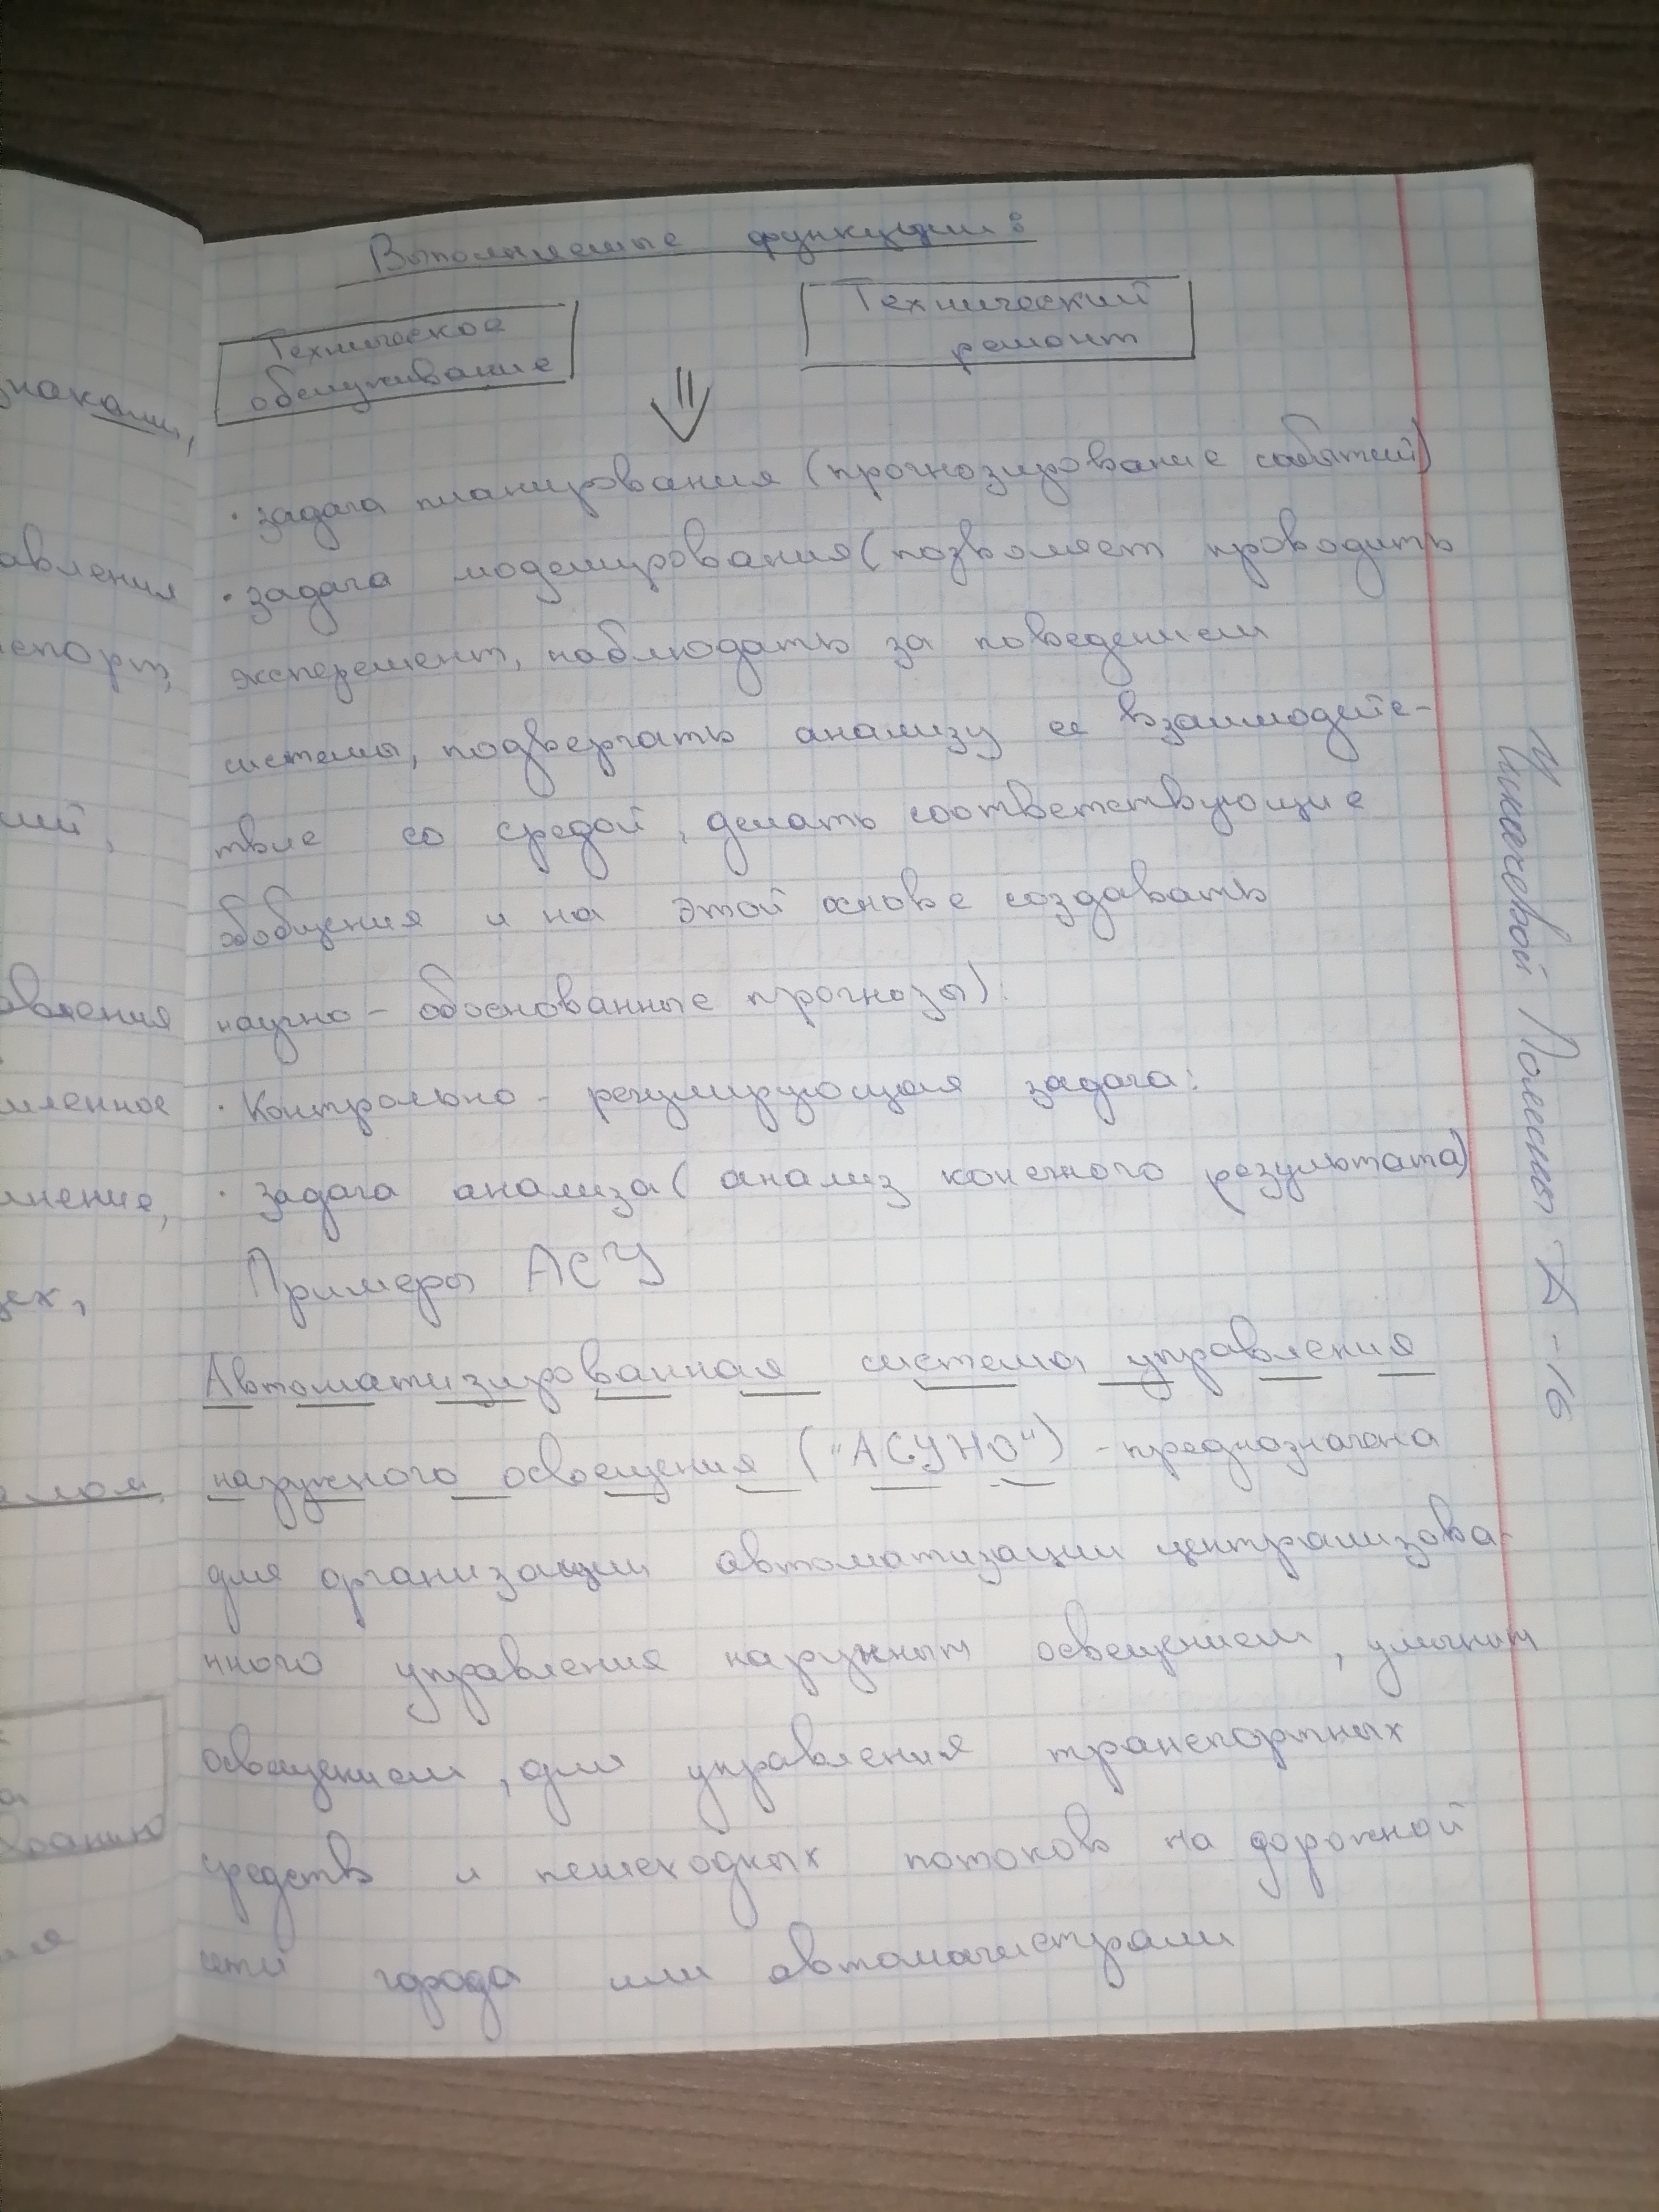 Выполняемые функции:
Техническое
обслуживание
Технический
ремонт
· задача планирования (прогнозирование событий)
· задача моделирования (позволяет проводить
эксперемент, наблюдать за поведением
системы, подвергать анализу ее взаимодейс-
твие со средой, делать соответствующие
обобщения и на этой основе создавать
научно - обоснованные прогнозы).
· Контрольно - регулирующая задача:
· задача анализа (анализ конечного результата)
Примеры АСУ
Автоматизированная система управления
наружного освоещения ("АСУНО") - предназначена
для организации автоматизации централизова-
нного управления наружным освещением, уличным
освещением, для управления транспортных
средств и пешеходных потоков на дорожной
сети города или автомагистрали
знаками,
авления
спорт,
ий,
авления
мленное
лнение,
цех,
алом
Полесты -16